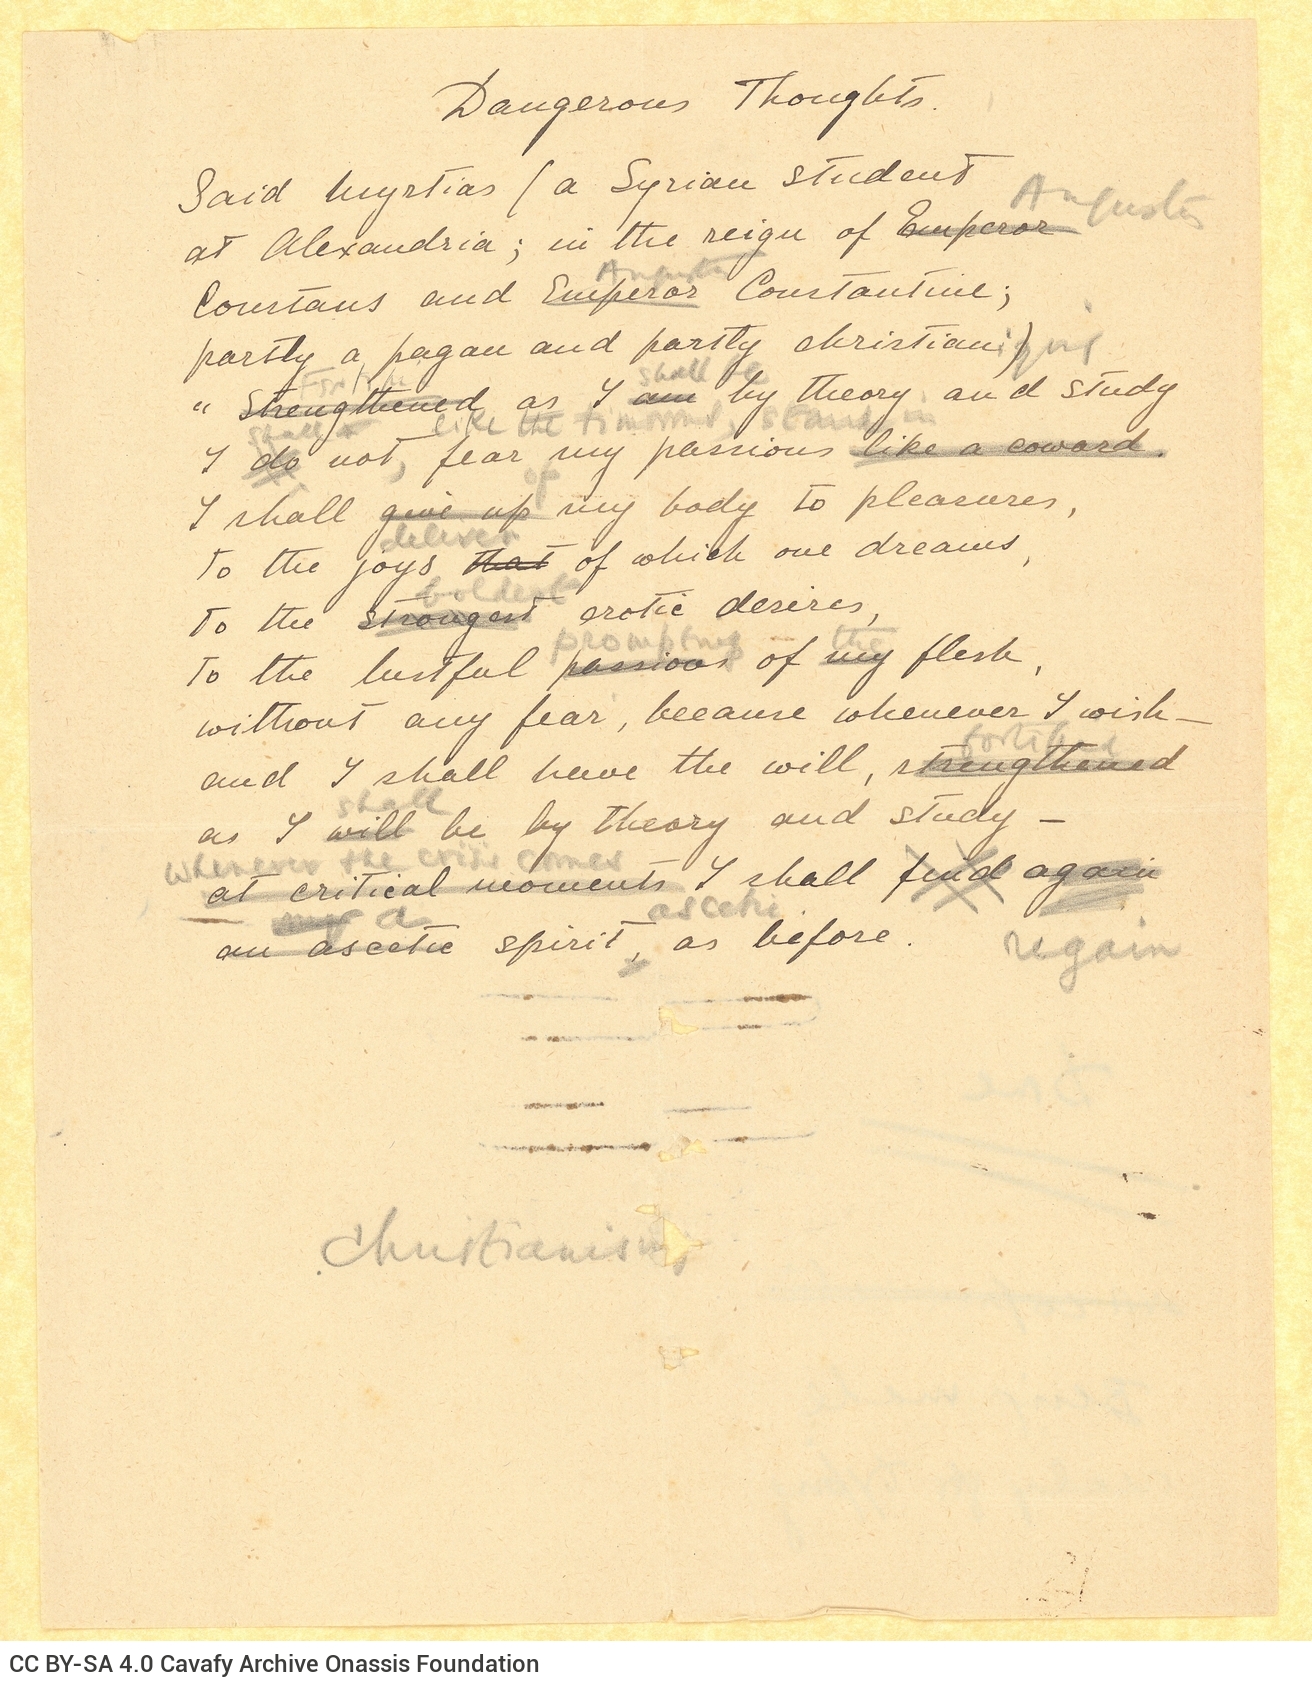 Dangerous Thoughts.
Said Myrtias (a Syrian student
Augustus
at Alexandria; in the reign of Emperor
Augustus
Constans and Emperor Constantine;
partly a pagan and partly christianizing)
shall be
" Strengthened as I am by theory and study
shall like the timorous, stand in
I do not, fear my passions like a coward.
of
I shall give up my body to pleasures,
deliver
to the joys that of which one dreams,
boldest
to the strongest erotic desires,
promptings the
to the lustful passions of my flesh,
without any fear, because whenever I wish—
fortified
and I shall have the will, strengthened
shall
as I will be by theory and study —
whenever the crisis comes
at critical moments I shall find again
my a ascetic
an ascetic spirit, as before.
regain
Christianism
CC BY-SA 4.0 Cavafy Archive Onassis Foundation